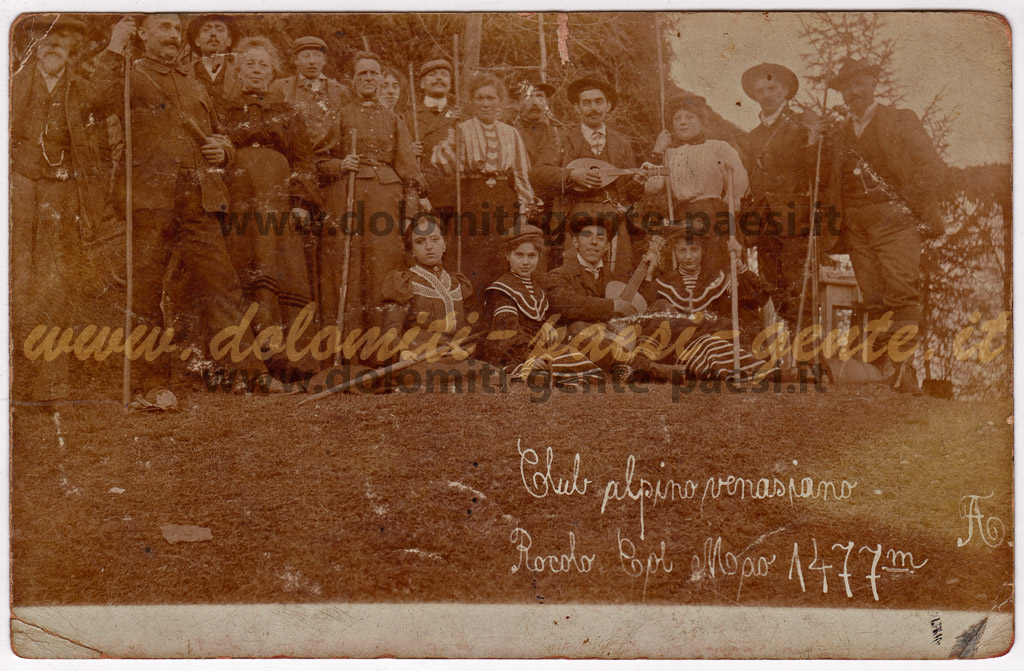 www.dolomiti-gente-paesi.it
www.dolomiti-paesi-gente.it
www.dolomiti-gente-paesi.it
Club alpino venasiano
Rocolo Col Moro 1477m